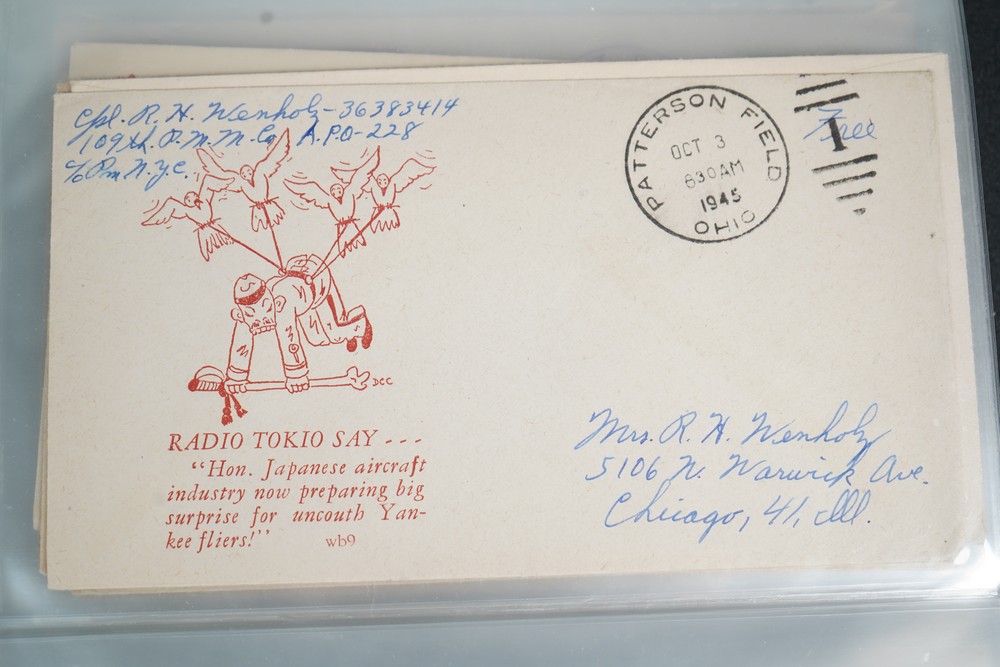 Cpl. R. H. Wenholz - 36383414
109th. R. M. M. Co. A.P.O-228
c/o Pm. N.Y.C.
PATTERSON FIELD
OCT 3
830 AM
1945
OHIO
1
Free
DCC
RADIO TOKIO SAY - - -
"Hon. Japanese aircraft
industry now preparing big
surprise for uncouth Yan-
kee fliers!"
wb9
Mrs. R. H. Wenholz
5106 N. Warwick Ave.
Chicago, 41, Ill.